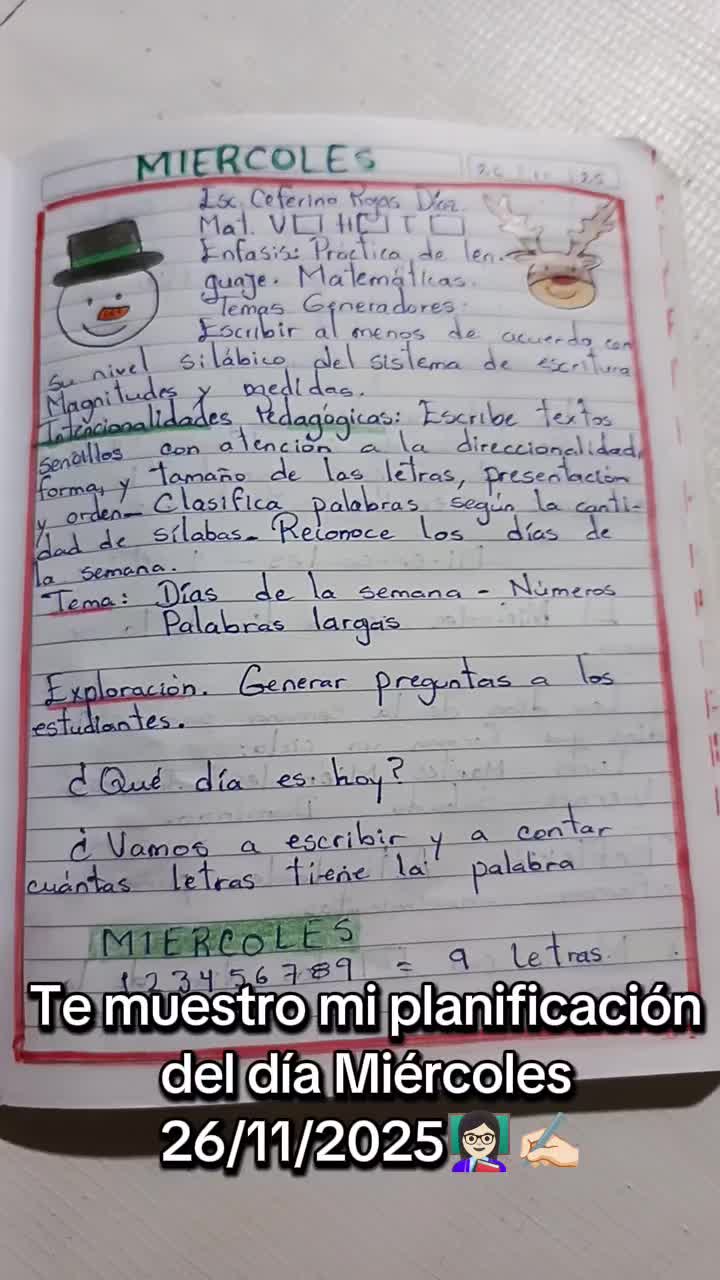 MIERCOLES
26 11 25
Esc. Ceferino Rojas Díaz.
Mat. V□ H□ T □
Enfasis: Práctica de len-
guaje. Matemáticas.
Temas Generadores:
Escribir al menos de acuerdo con
su nivel silábico del sistema de escritura
Magnitudes y medidas.
Intencionalidades Pedagógicas: Escribe textos
sencillos con atención a la direccionalidad,
forma, y tamaño de las letras, presentación
y orden_ Clasifica palabras según la canti-
dad de sílabas_ Reconoce los días de
la semana.
Tema: Días de la semana - Números
Palabras largas
Exploración. Generar preguntas a los
estudiantes.
¿Qué día es hoy?
¿Vamos a escribir y a contar
cuántas letras tiene la palabra
MIERCOLES
1 2 3 4 5 6 7 8 9 = 9 letras.
Te muestro mi planificación
del día Miércoles
26/11/2025👩🏻‍🏫✍🏻